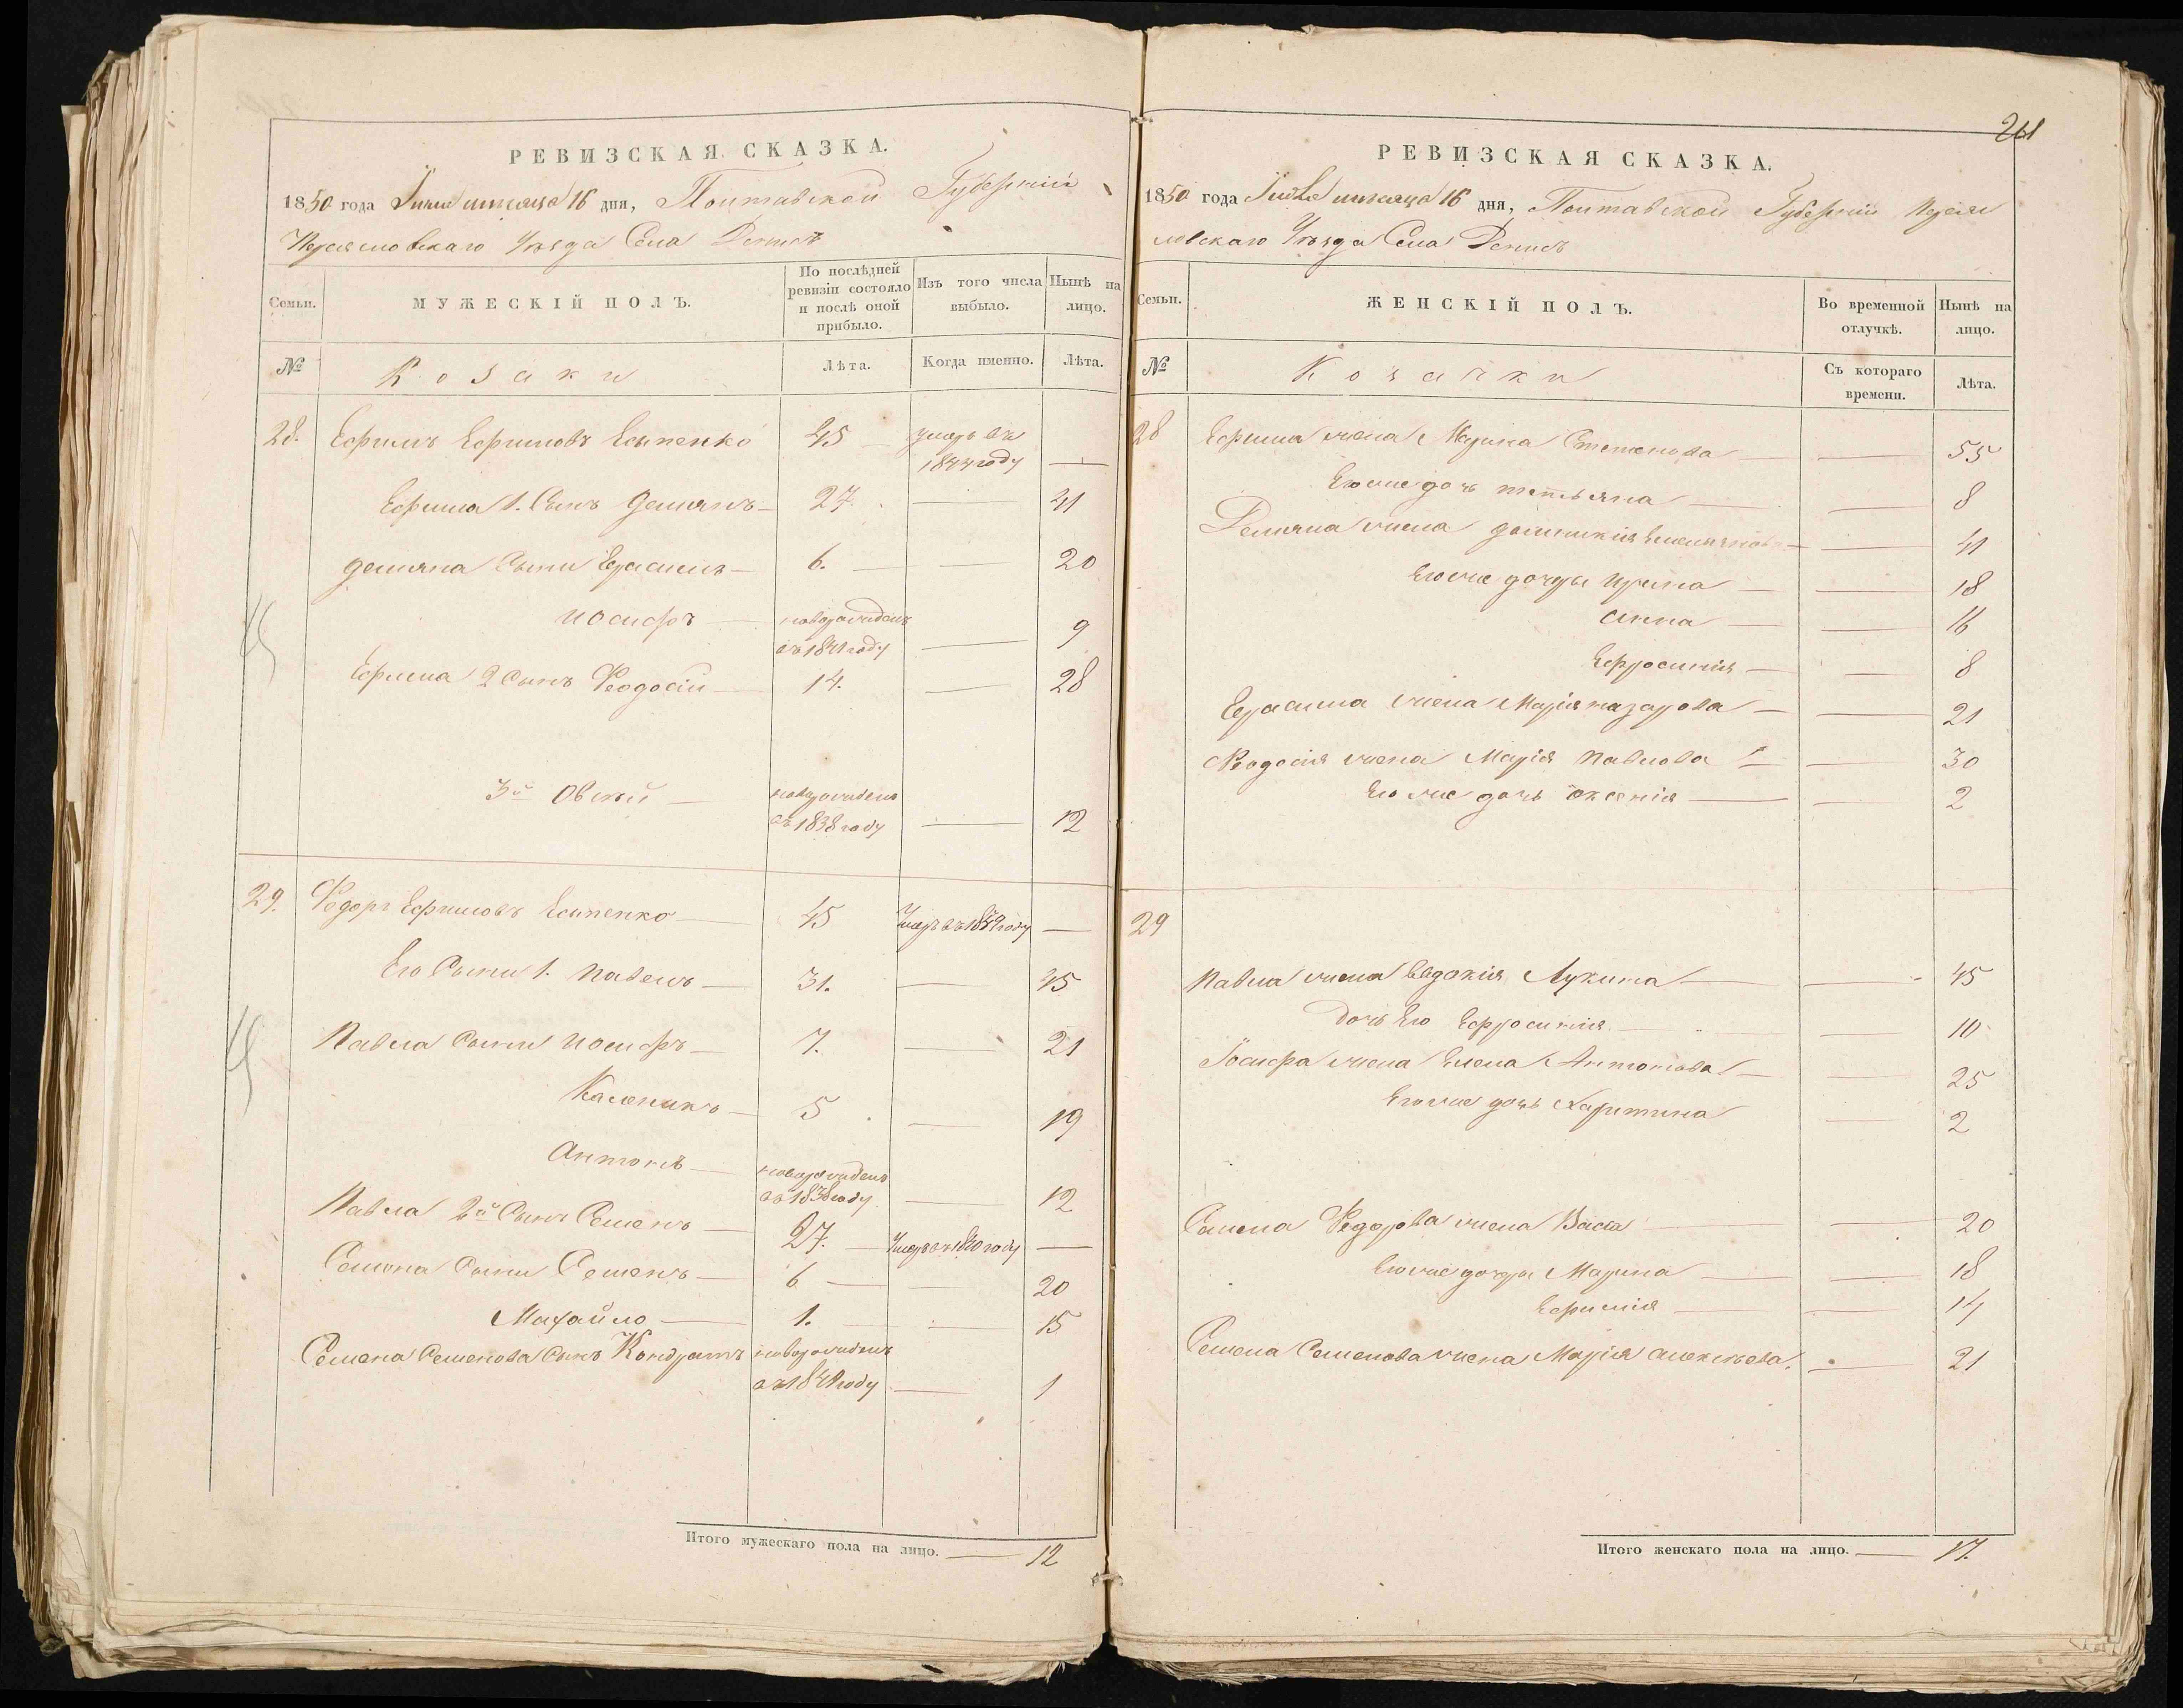 РЕВИЗСКАЯ СКАЗКА.
1850 года Іюня мѣсяца 16 дня, Полтавской Губерніи
Переясловскаго Уѣзда Села Денисъ
Семьи.
МУЖЕСКІЙ ПОЛЪ.
По послѣдней ревизіи состояло и послѣ оной прибыло.
Изъ того числа выбыло.
Нынѣ на лицо.
№
Козаки
Лѣта.
Когда именно.
Лѣта.
28. Ефимъ Ефимовъ Есипенко 45 умеръ въ
1844 году —
Ефима 1. Сынъ Демянъ — 27. — 41
Демяна Сыни Ерасимъ — 6. — — 20
Иосифъ — новорожденъ
въ 1841 году — 9
Ефима 2 Сынъ Феодосій — 14. — 28
3й — новорожденъ
въ 1838 году — 12
29. Федоръ Ефимовъ Есипенко — 45 Умеръ въ 1849 году —
Его Сыни 1. Павелъ — 31. — 45
Павла Сыни Иосифъ — 7. — 21
Каленикъ — 5 — 19
Антонъ — новорожденъ
въ 1838 году — 12
Павла 2й Сынъ Семенъ — 27. — Умеръ въ 1840 году —
Семена Сыни Семенъ — 6 — — 20
Михайло — 1. — — 15
Семена Семенова Сынъ Кондратъ новорожденъ
въ 1849 году — 1
Итого мужескаго пола на лицо. — 12
261
РЕВИЗСКАЯ СКАЗКА.
1850 года мѣсяца 16 дня, Полтавской Губерніи Переяс
ловскаго Уѣзда Села Денисъ
Семьи.
ЖЕНСКІЙ ПОЛЪ.
Во временной отлучкѣ.
Нынѣ на лицо.
№
Козачки
Съ котораго времени.
Лѣта.
28 Ефима жена Марина Степанова — — 55
Его же дочь Татьяна — — 8
Демяна жена Домникія Емельянова — — 41
Его же дочери Ирина — — 18
Анна — — 16
Ефросинія — — 8
Ерасима жена Марія Назарова — — 21
Феодосія жена Марія Павлова — — 30
Его же дочь Оксенія — — 2
29
Павла жена Евдокія Лукина — — 45
Дочь Его Ефросинія — — 10
Іосифа жена Елена Антонова — — 25
Его же дочь Харитина — 2
Семена Федорова жена Васса — — 20
Его же дочери Марина — — 18
Ефимія — — 14
Семена Семенова жена Марія Алексѣева. — 21
Итого женскаго пола на лицо. — 17.